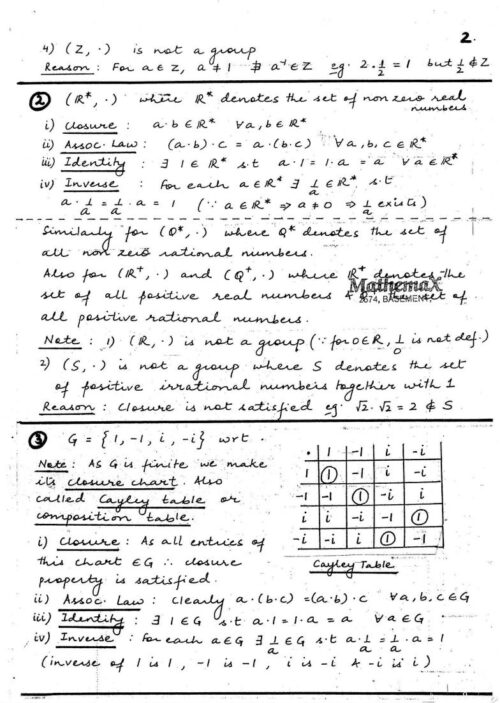 2.
4) (Z, ·) is not a group
Reason : For a ∈ Z, a ≠ 1 ∄ a⁻¹ ∈ Z eg. 2·1/2 = 1 but 1/2 ∉ Z
② (R*, ·) where R* denotes the set of non zero real numbers
i) Closure : a·b ∈ R* ∀ a, b ∈ R*
ii) Assoc. Law : (a·b)·c = a·(b·c) ∀ a, b, c ∈ R*
iii) Identity : ∃ 1 ∈ R* s.t a·1 = 1·a = a ∀ a ∈ R*
iv) Inverse : For each a ∈ R* ∃ 1/a ∈ R* s.t
a·1/a = 1/a·a = 1 (∵ a ∈ R* ⇒ a ≠ 0 ⇒ 1/a exists)
Similarly for (Q*, ·) where Q* denotes the set of
all non zero rational numbers.
Also for (R⁺, ·) and (Q⁺, ·) where R⁺ denotes the
MathemaX
set of all positive real numbers & set of
2674, BASEMENT
all positive rational numbers.
Note : 1) (R, ·) is not a group (∵ for 0 ∈ R, 1/0 is not def.)
2) (S, ·) is not a group where S denotes the set
of positive irrational numbers together with 1
Reason : Closure is not satisfied eg. √2·√2 = 2 ∉ S
③ G = {1, -1, i, -i} wrt ·
Note : As G is finite we make
its closure chart. Also
called Cayley table or
composition table.
i) Closure : As all entries of
this chart ∈ G ∴ closure
property is satisfied.
· 1 -1 i -i
1 ① -1 i -i
-1 -1 ① -i i
i i -i -1 ①
-i -i i ① -1
Cayley Table
ii) Assoc. Law : Clearly a·(b·c) = (a·b)·c ∀ a, b, c ∈ G
iii) Identity : ∃ 1 ∈ G s.t a·1 = 1·a = a ∀ a ∈ G
iv) Inverse : For each a ∈ G ∃ 1/a ∈ G s.t a·1/a = 1/a·a = 1
(inverse of 1 is 1, -1 is -1, i is -i & -i is i)